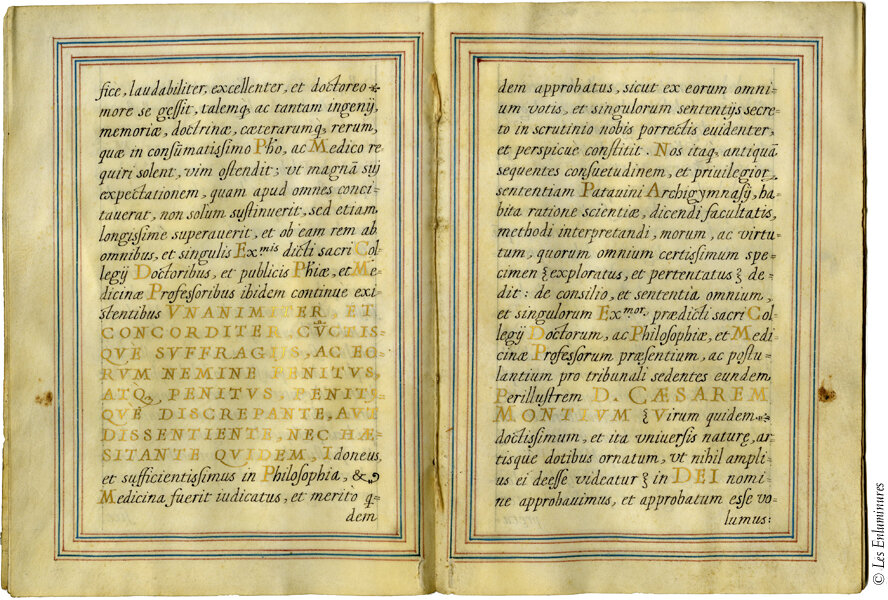 fice, laudabiliter, excellenter, et doctoreo
more se gessit, talemq, ac tantam ingenij,
memoriæ, doctrinæ, cæterarumq, rerum,
quæ in consũmatissimo Pħo, ac Medico re
quiri solent, vim ostendit; vt magnã suj
expectationem, quam apud omnes conci-
tauerat, non solum sustinuerit, sed etiam
longissime superauerit, et ob eam rem ab
omnibus, et singulis Ex.mis dicti sacri Col-
legij Doctoribus, et publicis Pħiæ, et Me-
dicinæ Professoribus ibidem continue exi-
stentibus VNANIMITER, ET
CONCORDITER, CV̄CTIS-
QVE SVFFRAGIJS, AC EO-
RVM NEMINE PENITVS,
ATQ, PENITVS, PENITS-
QVE DISCREPANTE, AVT
DISSENTIENTE, NEC HÆ-
SITANTE QVIDEM, Idoneus
et sufficientissimus in Philosophia, &
Medicina fuerit iudicatus, et merito q-
dem
dem approbatus, sicut ex eorum omni-
um votis, et singulorum sententijs secre-
to in scrutinio nobis porrectis euidenter,
et perspicue constitit. Nos itaq, antiquã
sequentes consuetudinem, et priuilegior,
sententiam Patauini Archigymnasij, ha-
bita ratione scientiæ, dicendi facultatis,
methodi interpretandi, morum, ac virtu-
tum, quorum omnium certissimum spe-
cimen exploratus, et pertentatus de-
dit: de consilio, et sententia omnium,
et singulorum Ex.mor. prædicti sacri Col-
legij Doctorum, ac Philosophiæ, et Medi-
cinæ Professorum præsentium, ac postu-
lantium pro tribunali sedentes eundem
Perillustrem D. CÆSAREM
MONTIVM Virum quidem
doctissimum, et ita vniuersis naturę, ar-
tisque dotibus ornatum, vt nihil ampli-
us ei deesse videatur in DEI nomi-
ne approbauimus, et approbatum esse vo-
lumus:
© Les Enluminures